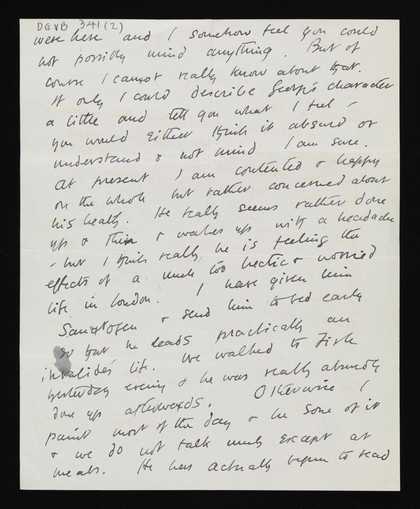 DGVB 341(2)
were here and I somehow feel you could
not possibly mind anything. But of
course I cannot really know about that.
If only I could describe George's character
a little and tell you what I feel –
you would either think it absurd or
understand & not mind I am sure.
At present I am contented & happy
on the whole but rather concerned about
his health. He really seems rather done
up & thin & wakes up with a headache
– but I think really he is feeling the
effects of a much too hectic & worried
life in London. I have given him
Sanatogen & send him to bed early
so that he leads practically an
invalides life. We walked to Firle
yesterday evening & he was really absurdly
done up afterwards. Otherwise I
paint most of the day & he some of it
& we do not talk much except at
meals. He has actually begun to read